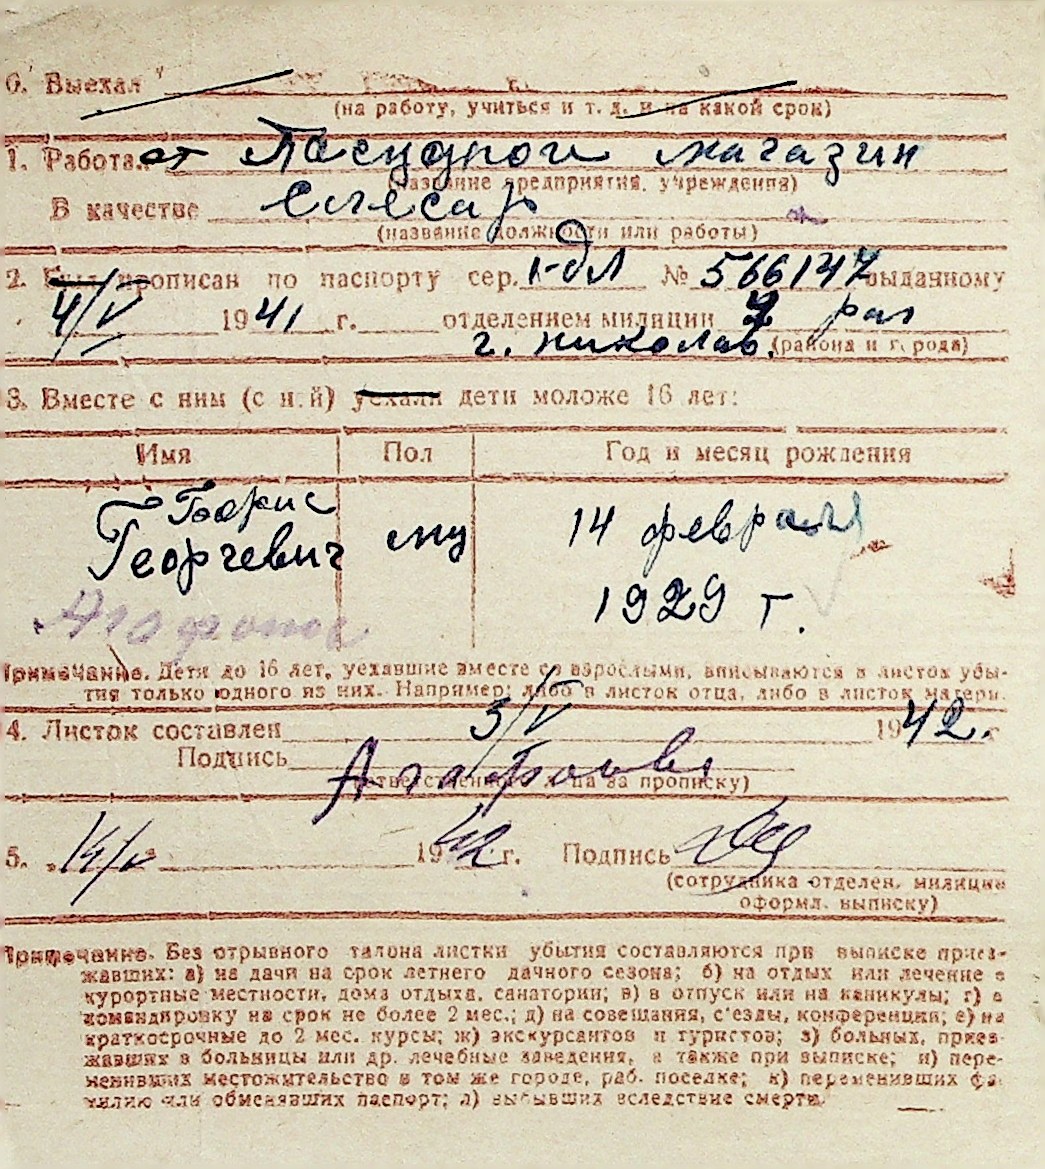 6. Выехал
(на работу, учиться и т. д. и на какой срок)
1. Работа ет Посудной магазин
(название предприятия, учреждения)
В качестве слесар
(название должности или работы)
2. Был прописан по паспорту сер. 1-дл № 566147 выданному
4/V 1941 г. отделением милиции 2 рай
г. николав. (района и города)
3. Вместе с ним (с ней) уехали дети моложе 16 лет:
Имя Пол Год и месяц рождения
Борис
Георгевич му 14 феврал
1929 г.
Примечание. Дети до 16 лет, уехавшие вместе со взрослыми, вписываются в листок убы-
тия только одного из них. Например: либо в листок отца, либо в листок матери.
4. Листок составлен 3/V 1942 г.
Подпись
(ответственного лица за прописку)
5. „14/V" 1942 г. Подпись
(сотрудника отделен. милиции
оформл. выписку)
Примечание. Без отрывного талона листки убытия составляются при выписке приез-
жавших: а) на дачи на срок летнего дачного сезона; б) на отдых или лечение в
курортные местности, дома отдыха, санатории; в) в отпуск или на каникулы; г) в
командировку на срок не более 2 мес.; д) на совещания, с'езды, конференции; е) на
краткосрочные до 2 мес. курсы; ж) экскурсантов и туристов; з) больных, приез-
жавших в больницы или др. лечебные заведения, а также при выписке; и) пере-
менивших местожительство в том же городе, раб. поселке; к) переменивших фа-
милию или обменявших паспорт; л) выбывших вследствие смерти.